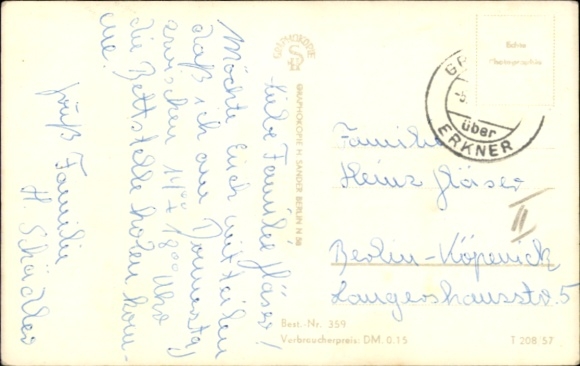 Liebe Familie Gläser!
Möchte Euch mitteilen
daß ich am Donnerstag
zwischen 17⁰⁰ 18⁰⁰ Uhr
die Bettstelle holen kom-
me.
Gruß Familie
H. Schädler
GRAPHOKOPIE
GRAPHOKOPIE H. SANDER BERLIN N 58
Echte
Photographie
über
ERKNER
Familie
Heinz Gläser
II
Berlin-Köpenick
Best.-Nr. 359
Verbraucherpreis: DM. 0.15
T 208 57